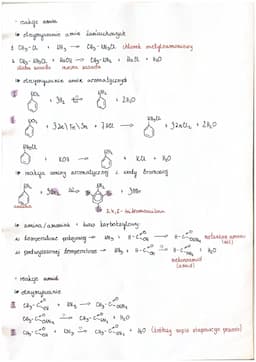 - reakcje amin
↳ otrzymywanie amin łańcuchowych
1. CH₃-Cl + NH₃ → CH₃-NH₃Cl chlorek metyloamoniowy
2. CH₃-NH₃Cl + NaOH → CH₃-NH₂ + NaCl + H₂O
słaba zasada mocna zasada
↳ otrzymywanie amin aromatycznych
NO₂ NH₂
+ 3H₂ → + 2H₂O
NO₂ NH₃Cl
+ 3Zn\Fe\Sn + 7HCl → + 3ZnCl₂ + 2H₂O
NH₃Cl NH₂
+ KOH → + KCl + H₂O
↳ reakcja aminy aromatycznej z wodą bromową
NH₂ NH₂
+ 3Br₂ → + 3HBr
anilina
2,4,6-tribromoanilina
↳ amina/amoniak + kwas karboksylowy
a) temperatura pokojowa → NH₃ + H-C=O OH → H-C=O ONH₄ metanian amonu (sól)
b) podwyższona temperatura → NH₃ + H-C=O OH → H-C=O NH₂ + H₂O
metanoamid (amid)
- reakcje amid
↳ otrzymywanie
CH₃-C=O OH + NH₃ → CH₃-C=O ONH₄
CH₃-C=O ONH₄ → CH₃-C=O NH₂ + H₂O
CH₃-C=O OH + NH₃ → CH₃-C=O NH₂ + H₂O (krótszy zapis etapowego procesu)